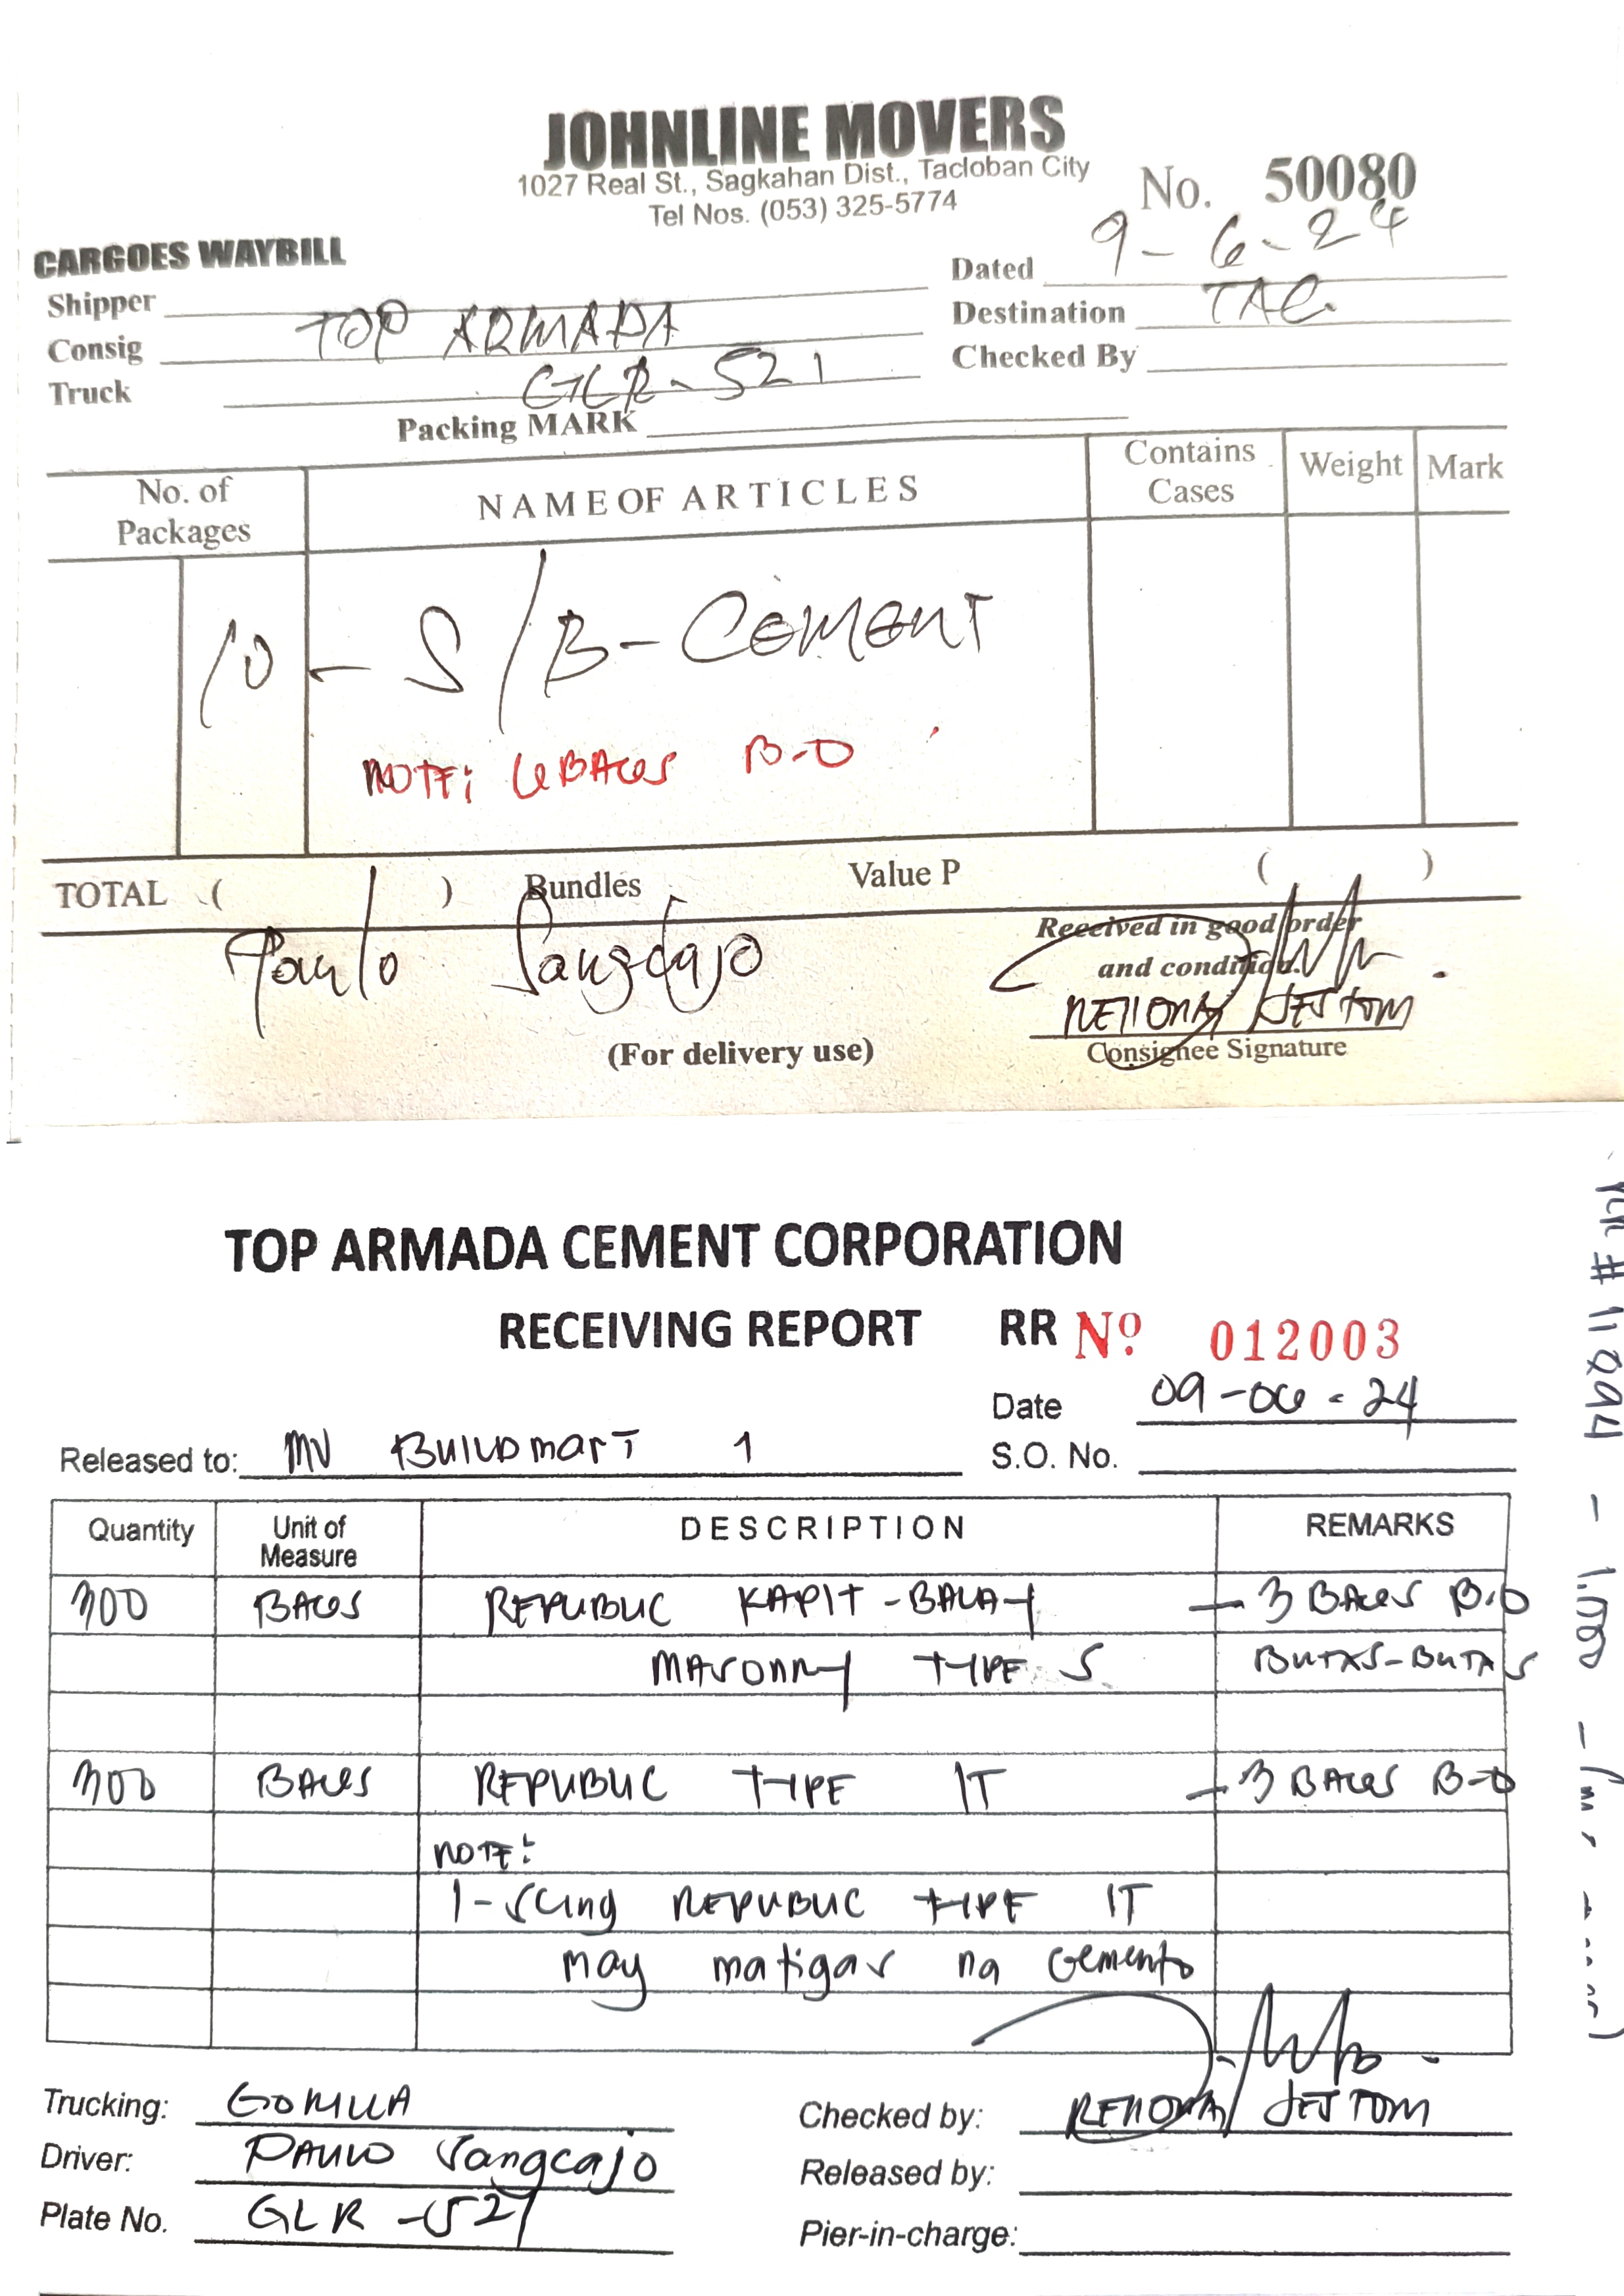 JOHNLINE MOVERS
1027 Real St., Sagkahan Dist., Tacloban City
Tel Nos. (053) 325-5774
No. 50080
CARGOES WAYBILL
Dated 9-6-24
Shipper
Destination TAC.
Consig TOP ARMADA
Checked By
Truck GLR-521
Packing MARK
No. of Packages
NAME OF ARTICLES
Contains Cases
Weight
Mark
10 - S/B-CEMENT
NOTE: 6 BAGS B-O
TOTAL ( ) Bundles Value P ( )
Paulo Sangcajo
Received in good order
and condition.
JESTOM
Consignee Signature
(For delivery use)
TOP ARMADA CEMENT CORPORATION
RECEIVING REPORT RR Nº 012003
Date 09-06-24
Released to: MV BUILDMART 1
S.O. No.
Quantity
Unit of Measure
DESCRIPTION
REMARKS
300 BAGS REPUBLIC KAPIT-BALAY - 3 BAGS B.O
MASONRY TYPE S BUTAS-BUTAS
300 BAGS REPUBLIC TYPE IT - 3 BAGS B-O
NOTE:
1-sling REPUBLIC TYPE IT
may matigas na cemento
Trucking: GORILLA
Checked by: JESTOM
Driver: PAULO Sangcajo
Released by:
Plate No. GLR-521
Pier-in-charge: